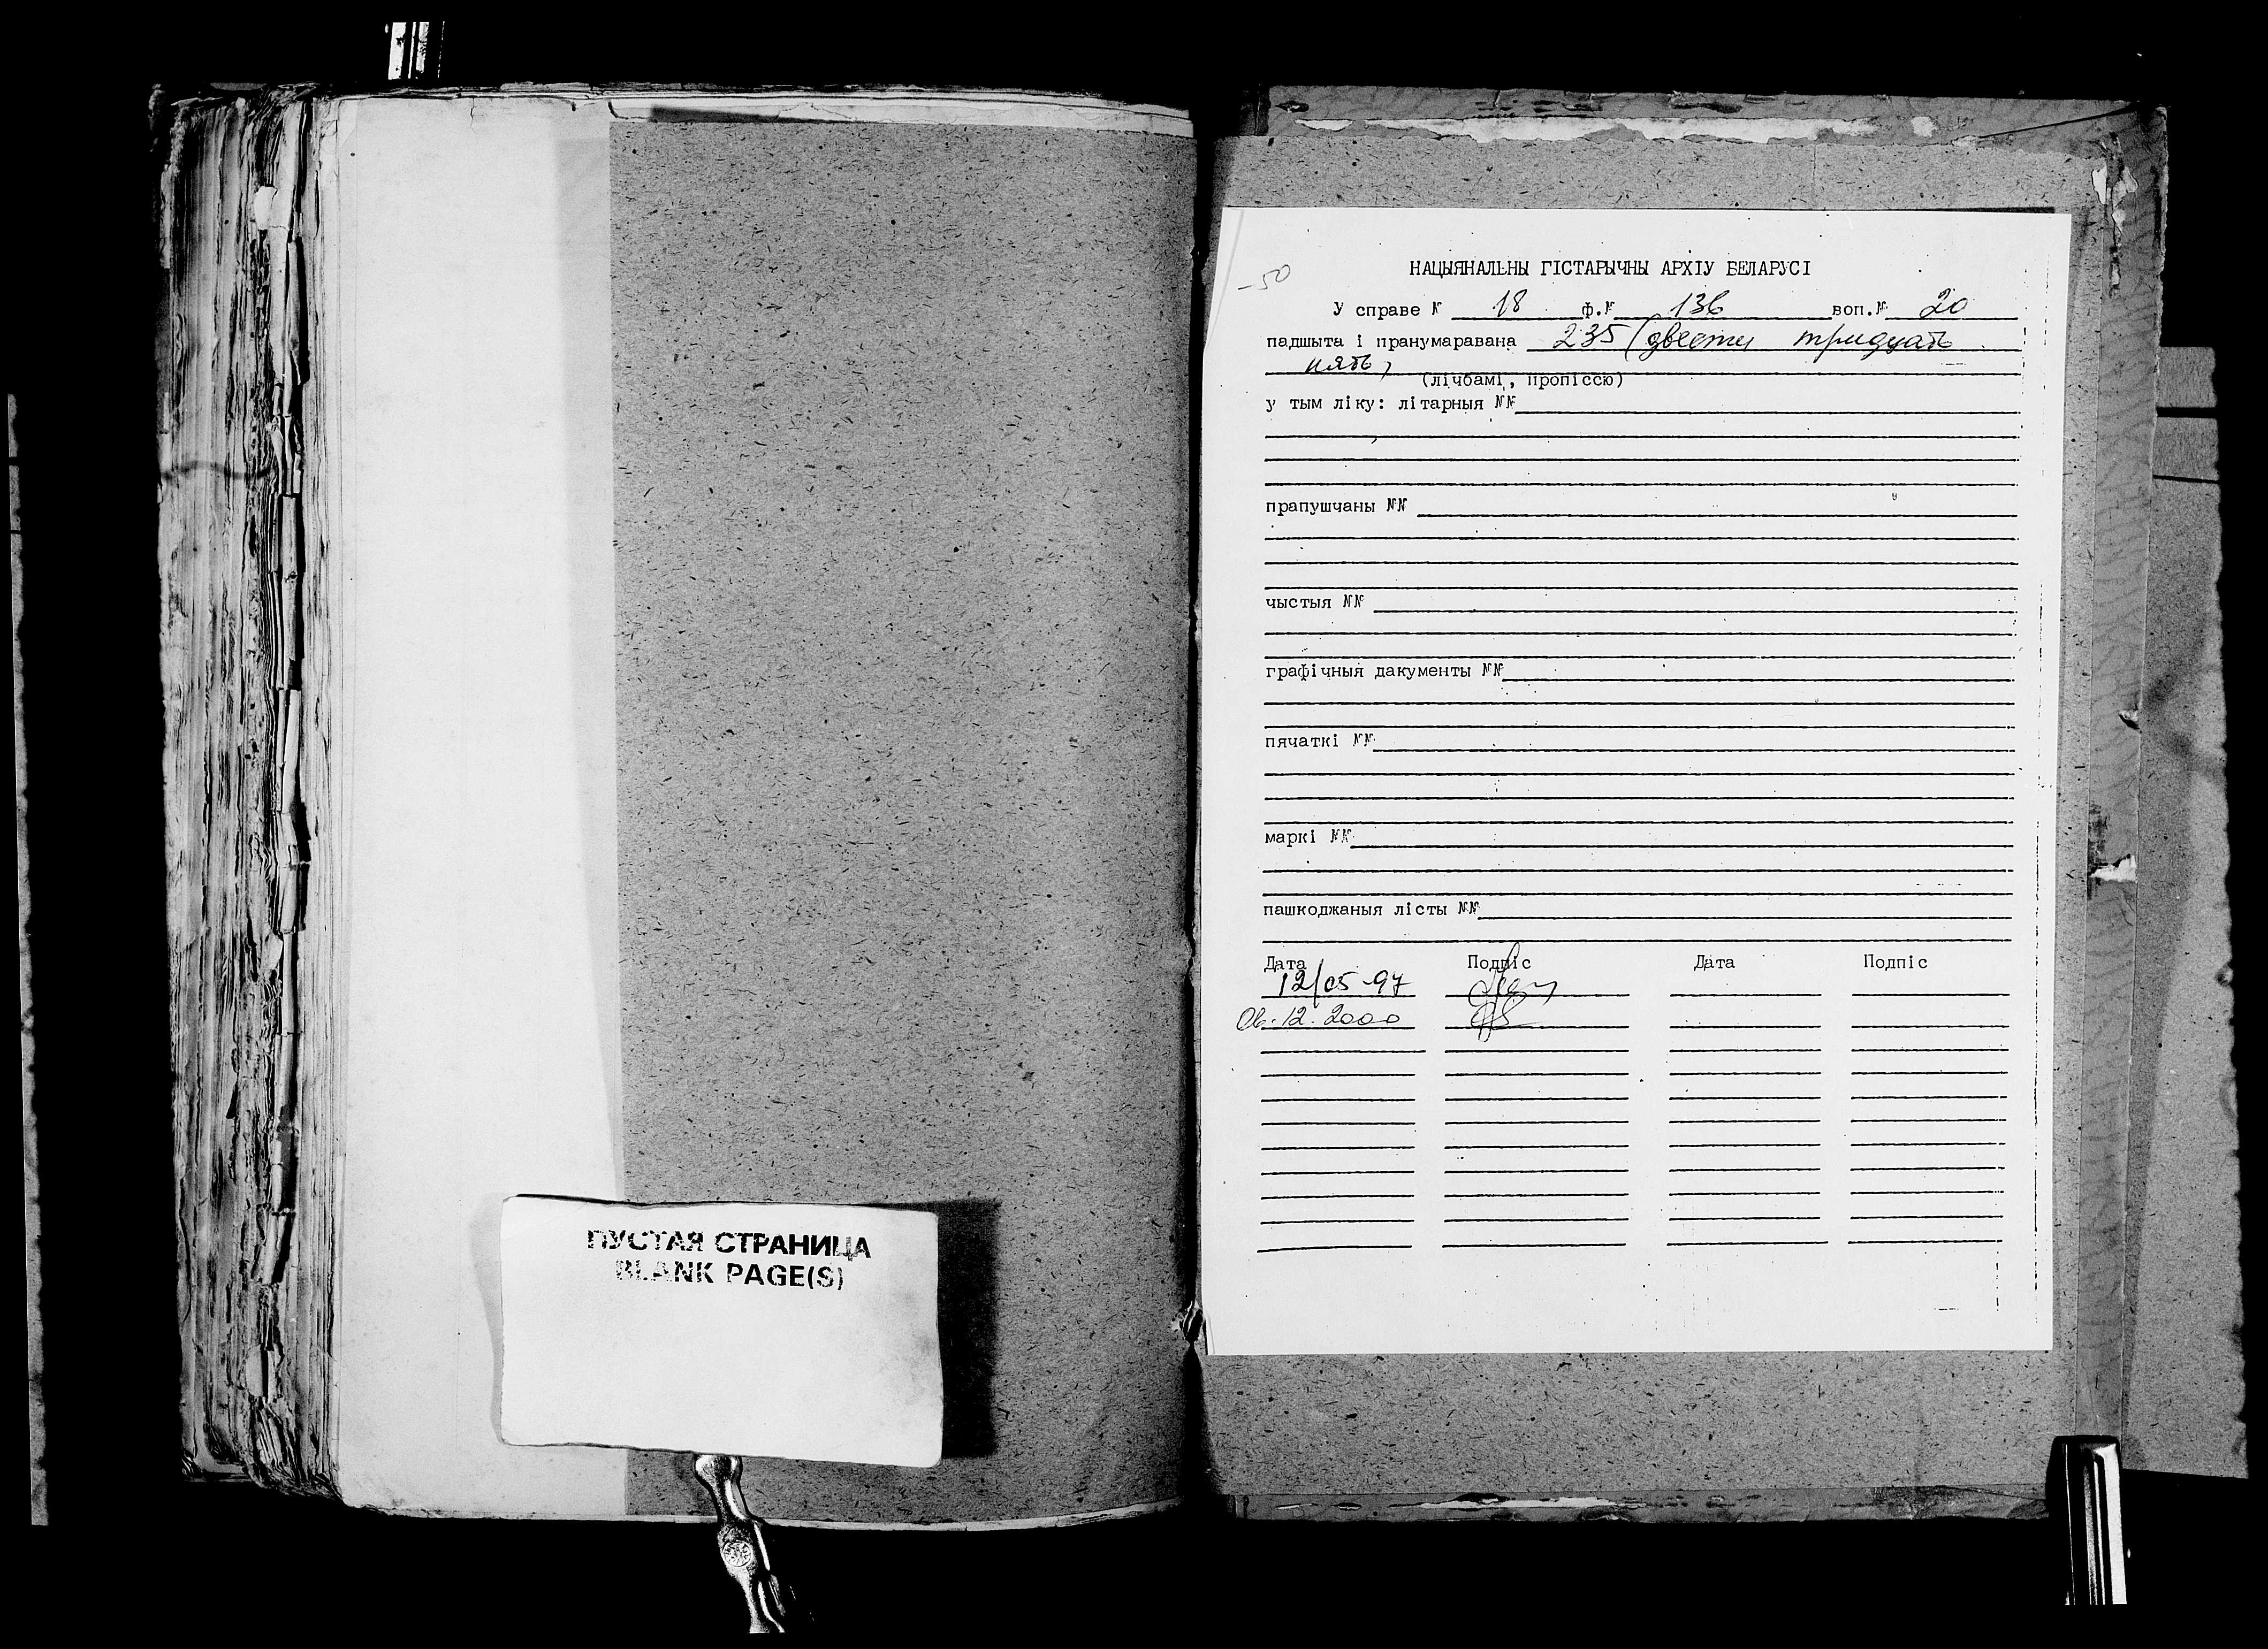 ПУСТАЯ СТРАНИЦА
BLANK PAGE(S)
-50
НАЦЫЯНАЛЬНЫ ГІСТАРЫЧНЫ АРХІУ БЕЛАРУСІ
У справе № 18 ф.№ 136 воп.№ 20
падшыта і пранумаравана 235 (двести тридцать
пять)
(лічбамі, пропіссю)
у тым ліку: літарныя №№
прапушчаны №№
чыстыя №№
графічныя дакументы №№
пячаткі №№
маркі №№
пашкоджаныя лісты №№
Дата Подпіс Дата Подпіс
12/05-97
06.12.2000